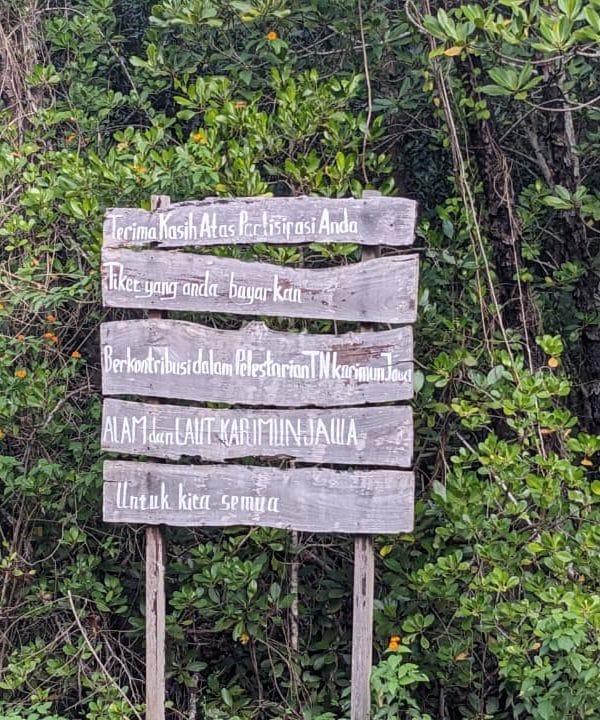 Terima Kasih Atas Partisipasi Anda
Tiket yang anda bayarkan
Berkontribusi dalam Pelestarian TN karimun Jawa
ALAM dan LAUT KARIMUNJAWA
Untuk kita semua